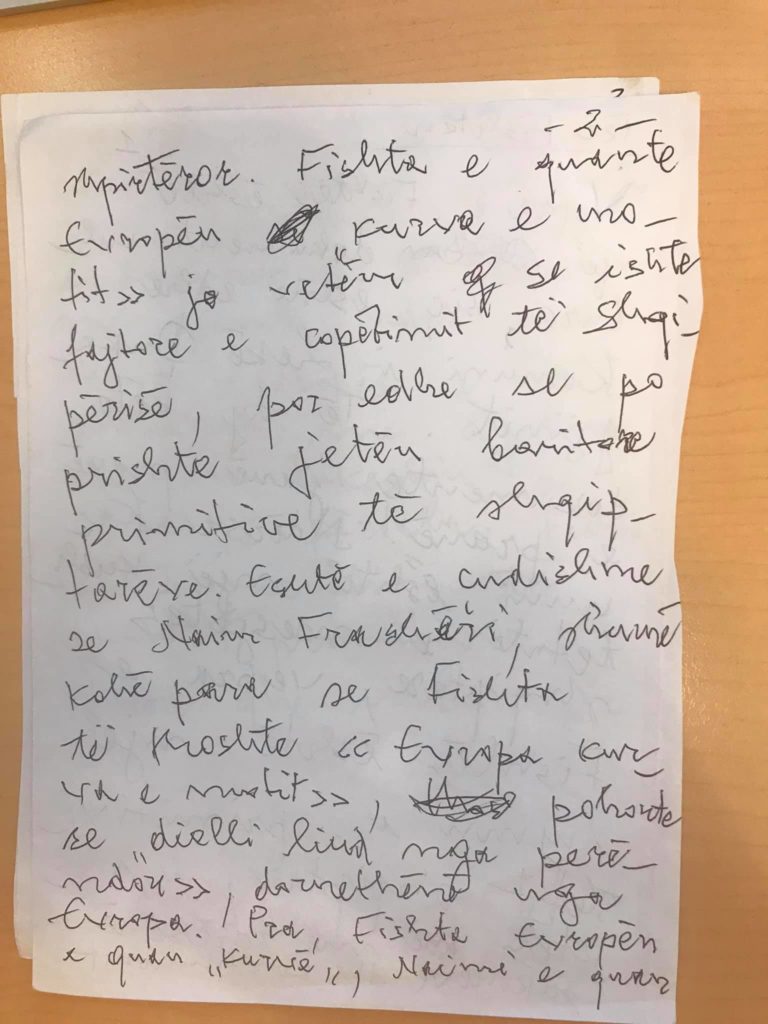 - 2 -
shpirtëror. Fishta e quante
Evropën „kurva e mo-
tit>> jo vetëm se ishte
fajtore e copëtimit të Shqi-
përisë, por edhe se po
prishte jetën baritore
primitive të shqip-
tarëve. Është e çudishme
se Naim Frashëri, shumë
kohë para se Fishta
të thoshte << Evropa kur-
va e motit>>, pohonte
se „dielli lind nga perë-
ndon>>, domethënë nga
Evropa. Pra, Fishta Evropën
e quan „kurvë„, Naimi e quan